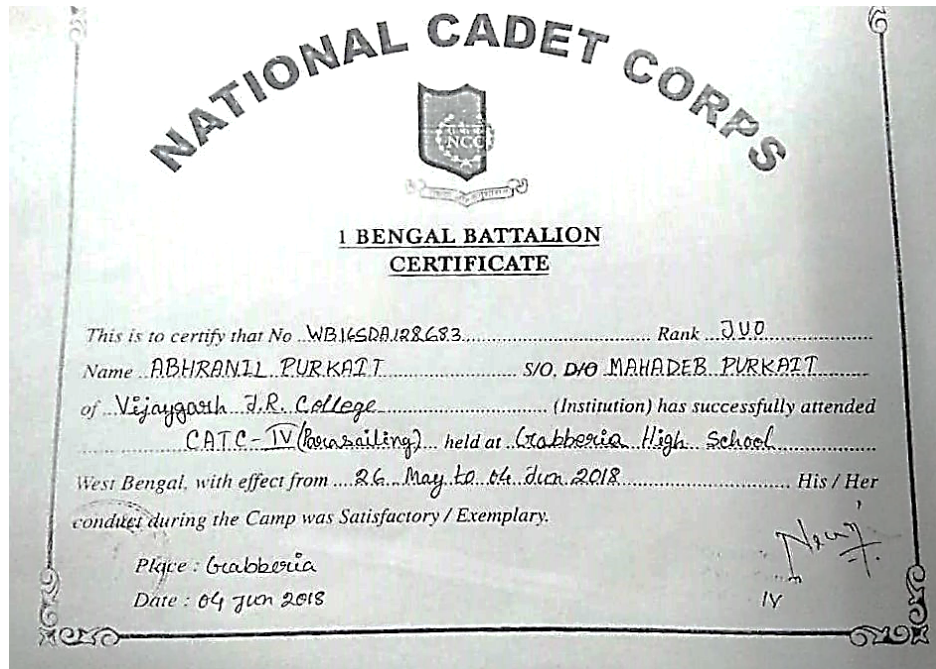 NATIONAL CADET CORPS
NCC
1 BENGAL BATTALION
CERTIFICATE
This is to certify that No WB16SDA128683 Rank JUO
Name ABHRANIL PURKAIT S/O, D/O MAHADEB PURKAIT
of Vijaygarh J.R. College (Institution) has successfully attended
CATC-IV (Parasailing) held at Grabberia High School
West Bengal, with effect from 26 May to 04 Jun 2018 His / Her
conduct during the Camp was Satisfactory / Exemplary.
Place : Grabberia
Date : 04 Jun 2018